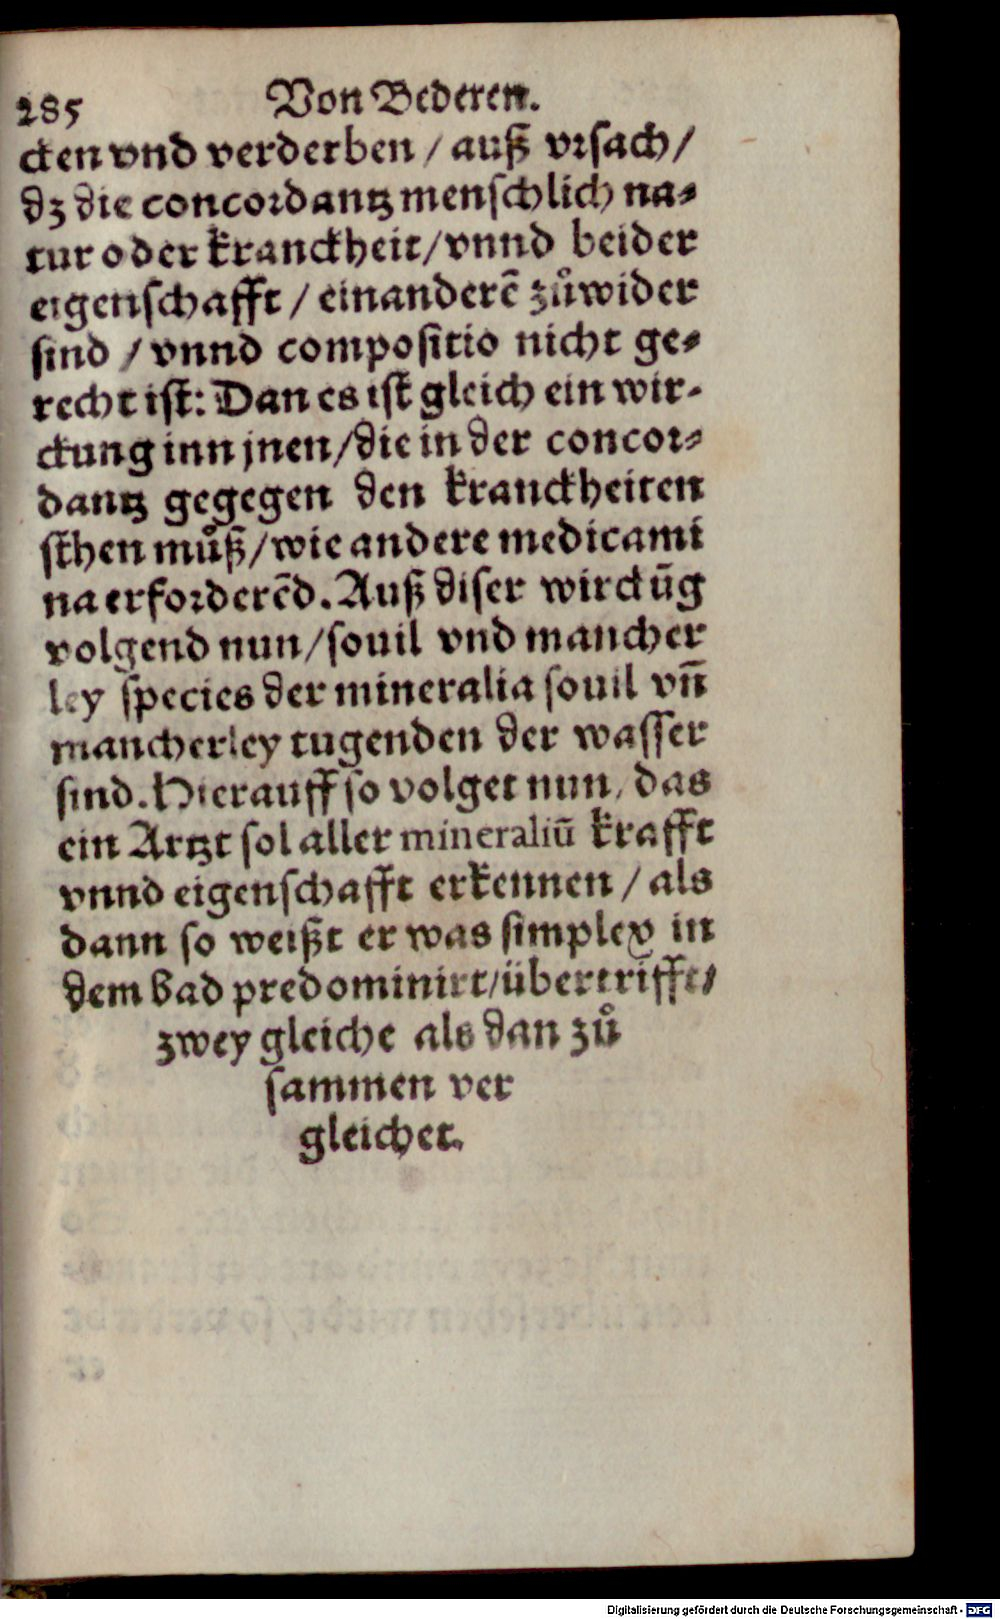 285 Von Bederen.
cken vnd verderben / auß vrsach /
dz die concordantz menschlich na⸗
tur oder kranckheit / vnnd beider
eigenschafft / einanderē zůwider
sind / vnnd compositio nicht ge⸗
recht ist: Dan es ist gleich ein wir⸗
ckung inn jnen / die in der concor⸗
dantz gegegen den kranckheiten
sthen můß / wie andere medicami
na erforderēd. Auß diser wirckūg
volgend nun / souil vnd mancher
ley species der mineralia souil vn̄
mancherley tugenden der wasser
sind. Hierauff so volget nun / das
ein Artzt sol aller mineraliū krafft
vnnd eigenschafft erkennen / als
dann so weißt er was simplex in
dem bad predominirt / übertrifft /
zwey gleiche als dan zů
sammen ver
gleichet.
Digitalisierung gefördert durch die Deutsche Forschungsgemeinschaft - DFG